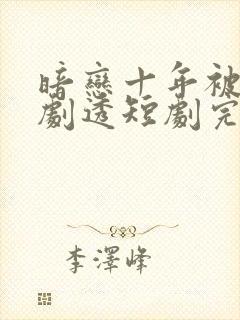 暗戀十年被
劇透短劇完
李澤峰